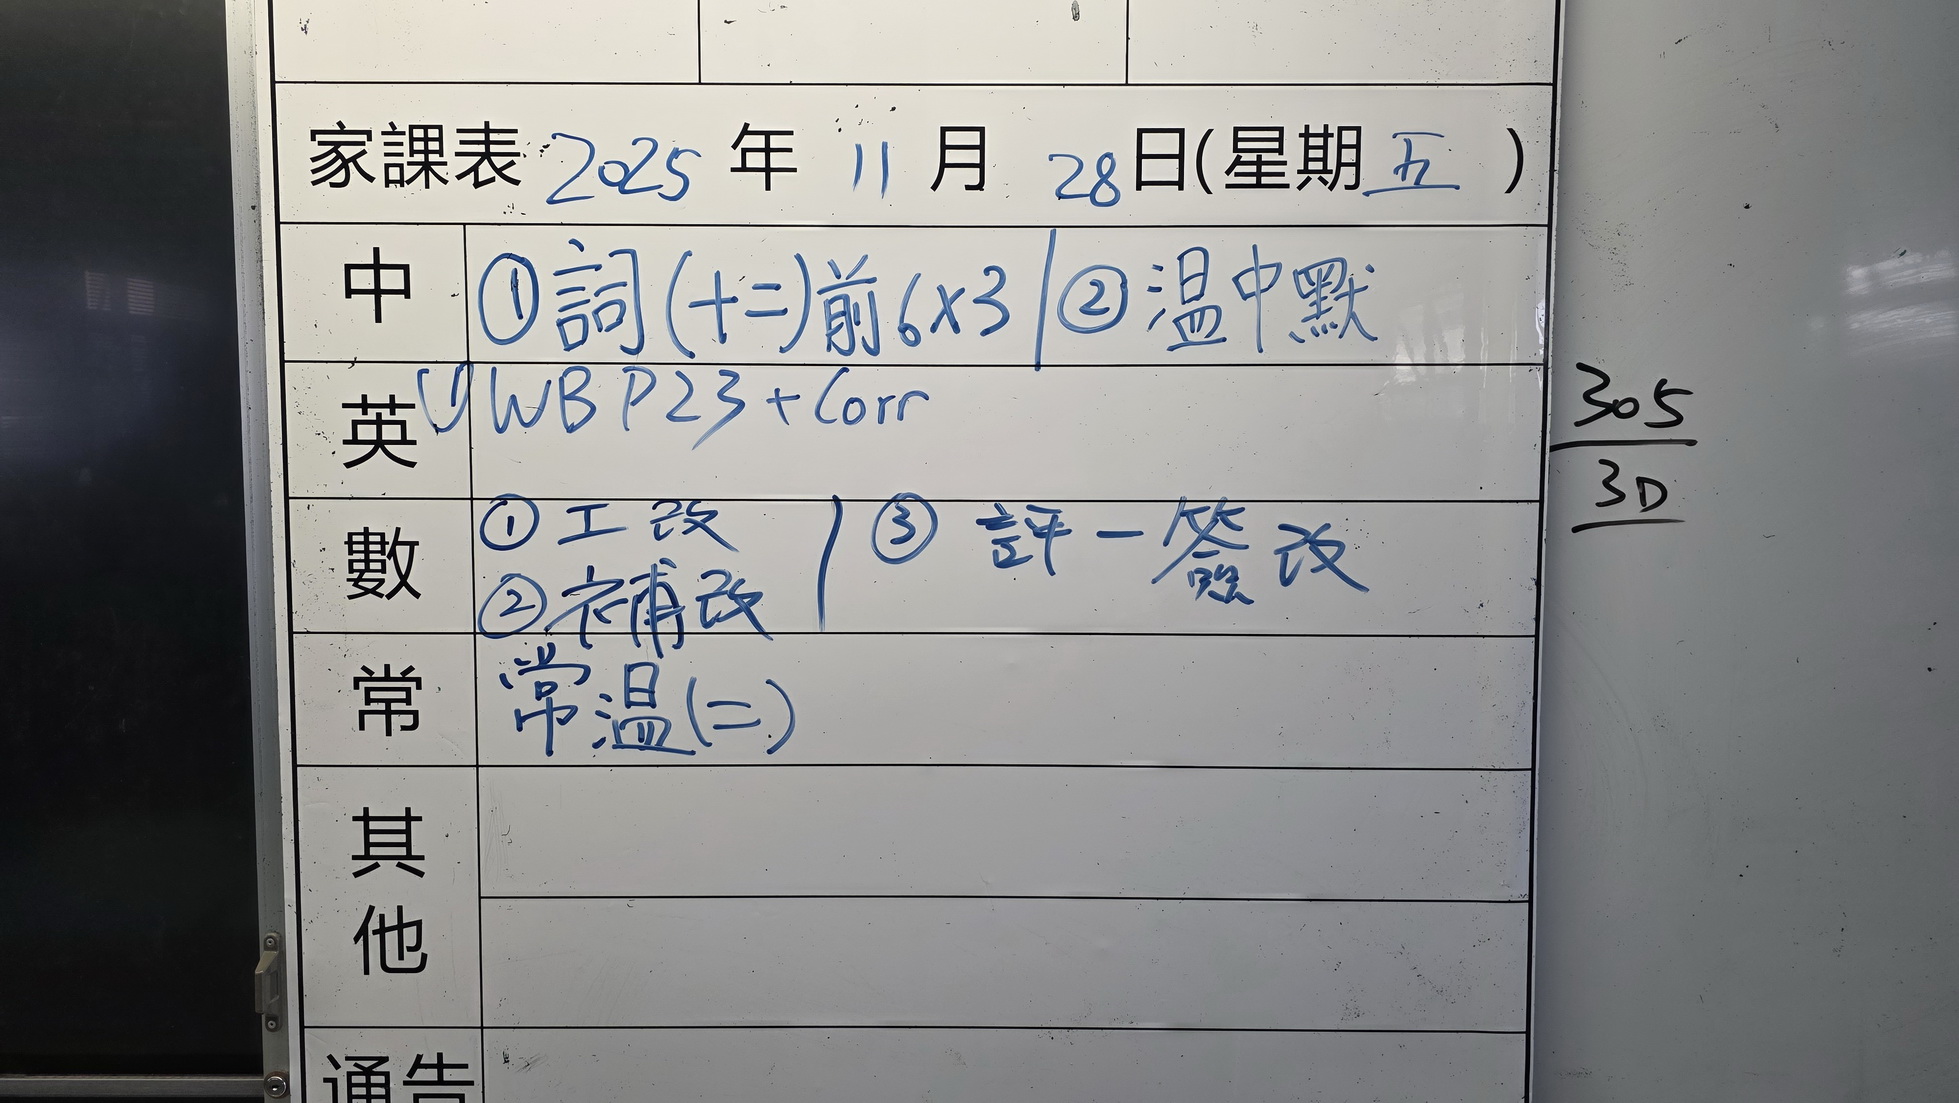 家課表 2025 年 11 月 28 日(星期五)
中 ①詞(十二)前6x3 | ②温中默
英 ① WB P23 + Corr
數 ①工改 | ③ 評一簽改
②補改
常 常温(二)
其他
通告
305
3D